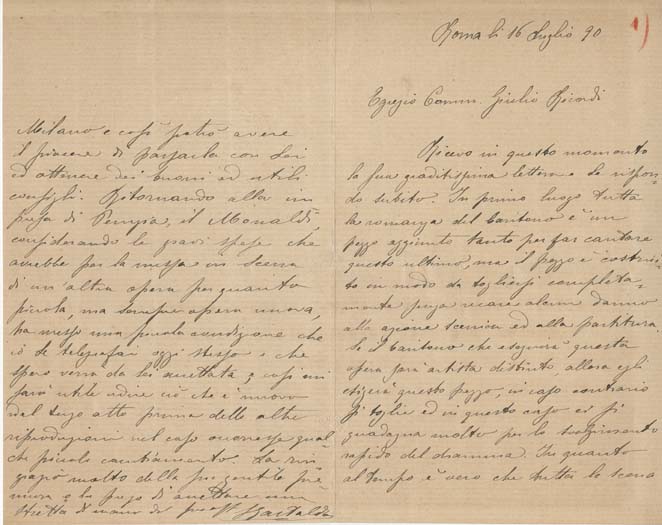 1)
Roma li 16 Luglio 90
Egregio Comm. Giulio Ricordi
Ricevo in questo momento
la sua graditissima lettera e Le rispon-
do subito. In primo luogo tutta
la romanza del baritono è un
pezzo aggiunto tanto per far cantare
questo ultimo, ma il pezzo è costrui-
to in modo da togliersi completa-
mente senza recare alcun danno
alla azione scenica ed alla partitura.
Se il baritono che eseguirà questa
opera sarà artista distinto allora egli
esigerà questo pezzo, in caso contrario
si toglie ed in questo caso ci si
guadagna molto per lo svolgimento
rapido del dramma. In quanto
al tempo è vero che tutta la scena
Milano e così potrò avere
il piacere di parlarla con Lei
ed ottenere dei buoni ed utili
consigli. Ritornando alla im
presa di Perugia, il Monaldi
considerando le gravi spese che
avrebbe per la messa in scena
di un'altra opera per quanto
piccola, ma sempre opera nuova,
ha messo una piccola condizione che
io Le telegrafai oggi stesso e che
spero verrà da Lei accettata, e così mi
sarà utile udire ciò che è nuovo
del terzo atto prima delle altre
riproduzioni nel caso occoresse qual
che piccolo cambiamento. La rin
grazio molto della sua gentile pre
mura e La prego di accettare una
stretta di mano dal suo